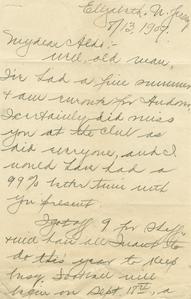 Elizabeth, N. Jersey
8/13, 1909.
My dear Aldi:-
Well, old man,
I've had a fine summer
& am
I certainly did miss
you at the club as
did everyone, and I
would have had a
99% better time with
you present.
9 for
& will have all I want to
do this year to keep
busy. Football will
begin on Sept 15th, a